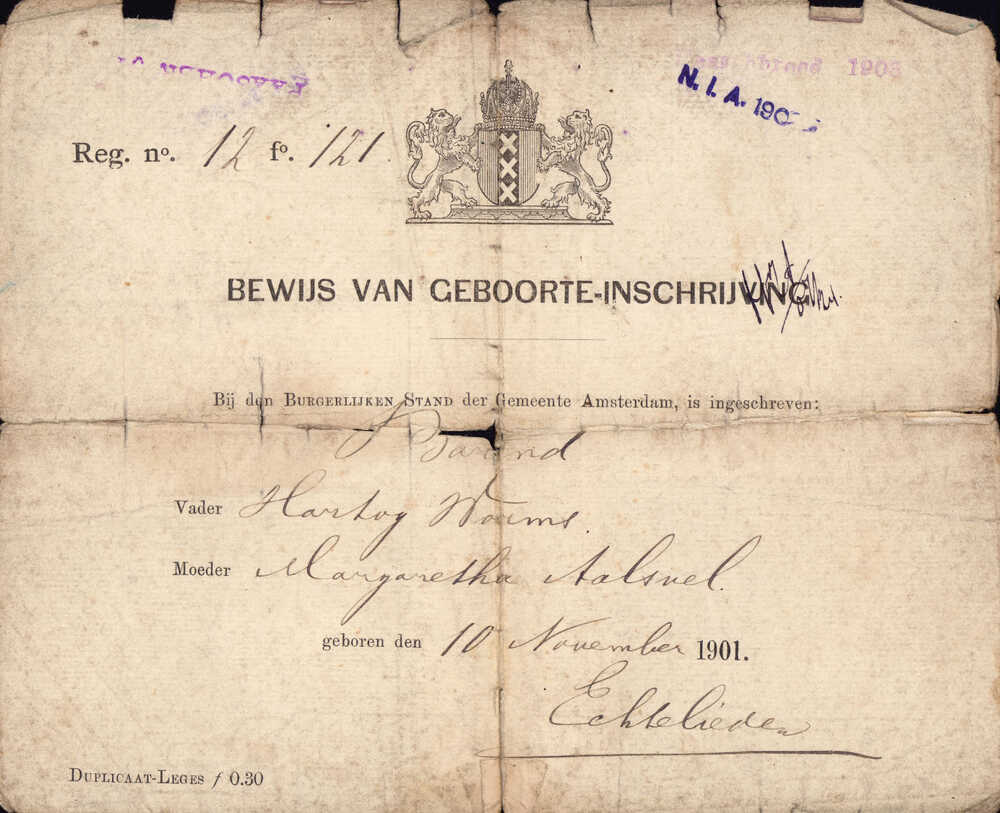 1903
N. I. A. 190
Reg. nº. 12 fº. 121.
BEWIJS VAN GEBOORTE-INSCHRIJVING
Bij den BURGERLIJKEN STAND der Gemeente Amsterdam, is ingeschreven:
Barend
Vader Hartog Worms.
Moeder Margaretha Aalsvel.
geboren den 10 November 1901.
Echtelieden
DUPLICAAT-LEGES ƒ 0.30